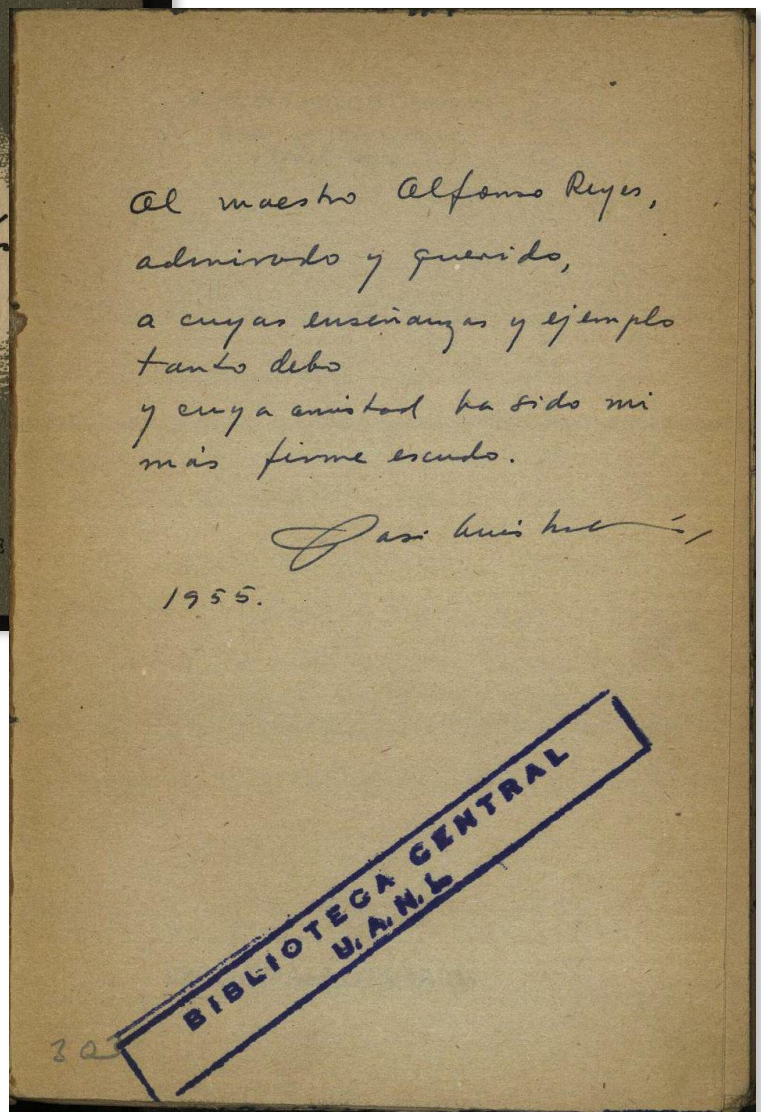 Al maestro Alfonso Reyes,
admirado y querido,
a cuyas enseñanzas y ejemplo
tanto debo
y cuya amistad ha sido mi
más firme escudo.
José Luis
1955.
BIBLIOTECA CENTRAL
U.A.N.L.